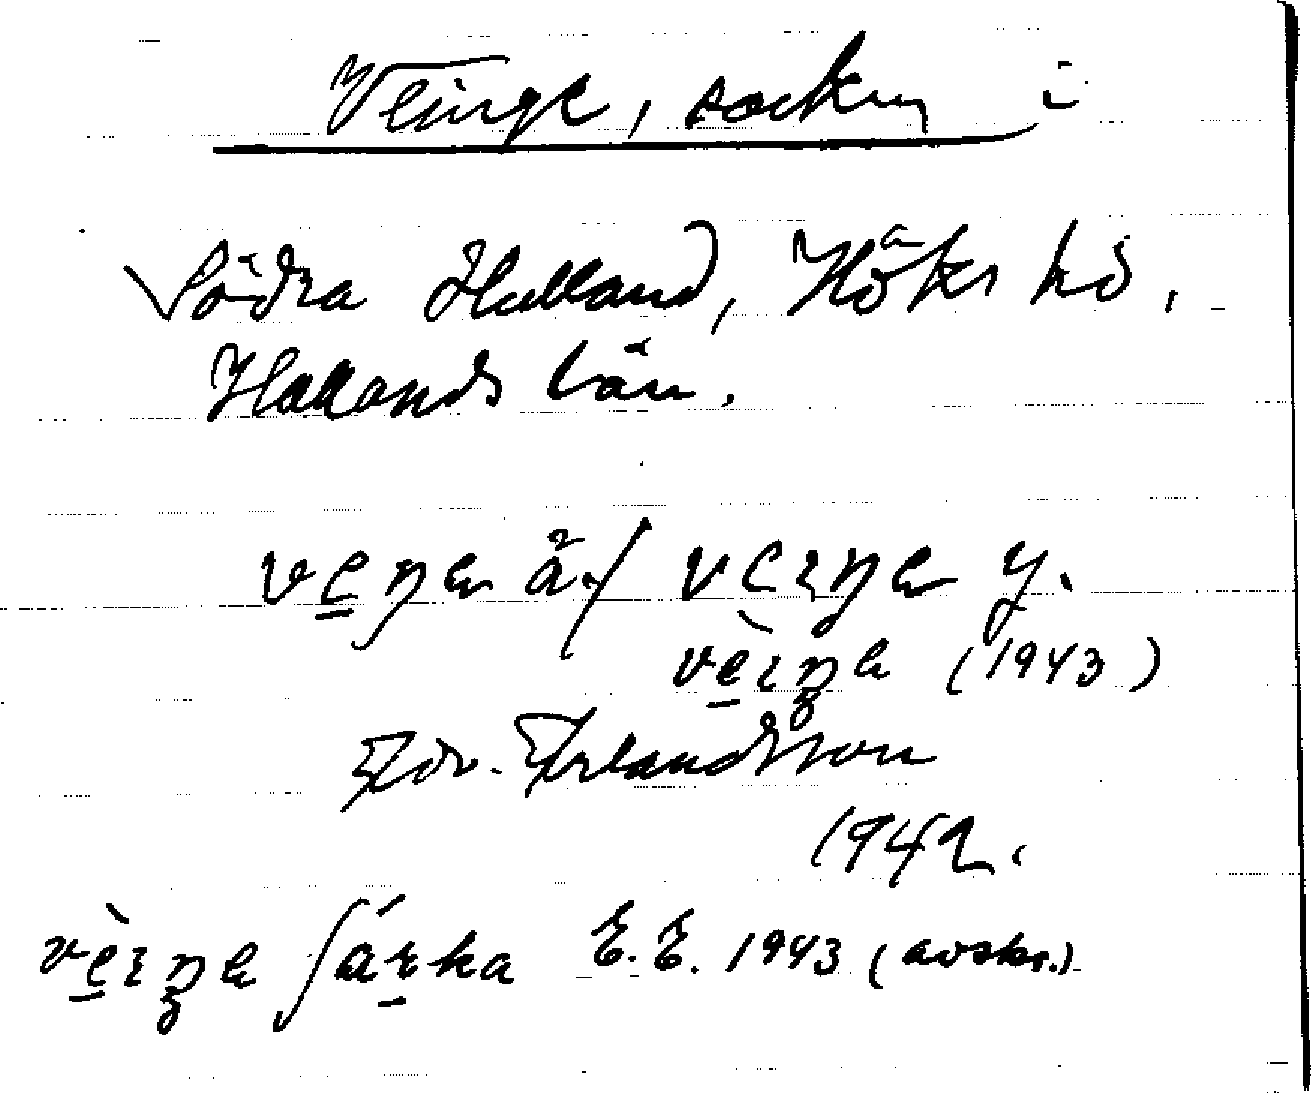 Veinge, socken i
Södra Halland, Höks hd,
Hallands län.
veŋe ä. / veiŋe y.
vèiŋe (1943)
Edv. Erlandsson
1942.
vèiŋe ʃárka E.E. 1943 (avskr.)